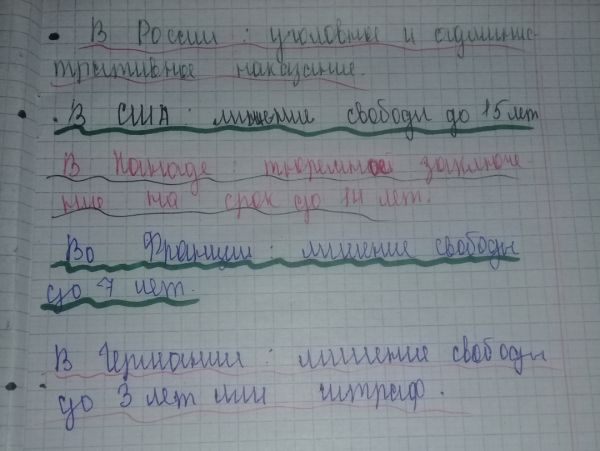 • В России : уголовные и админис-
тративное наказание.
• В США : лишение свободы до 15 лет
В Канаде : тюремное заключе-
ние на срок до 14 лет.
Во Франции : лишение свободы
до 7 лет.
В Германии : лишение свободы
до 3 лет или штраф.